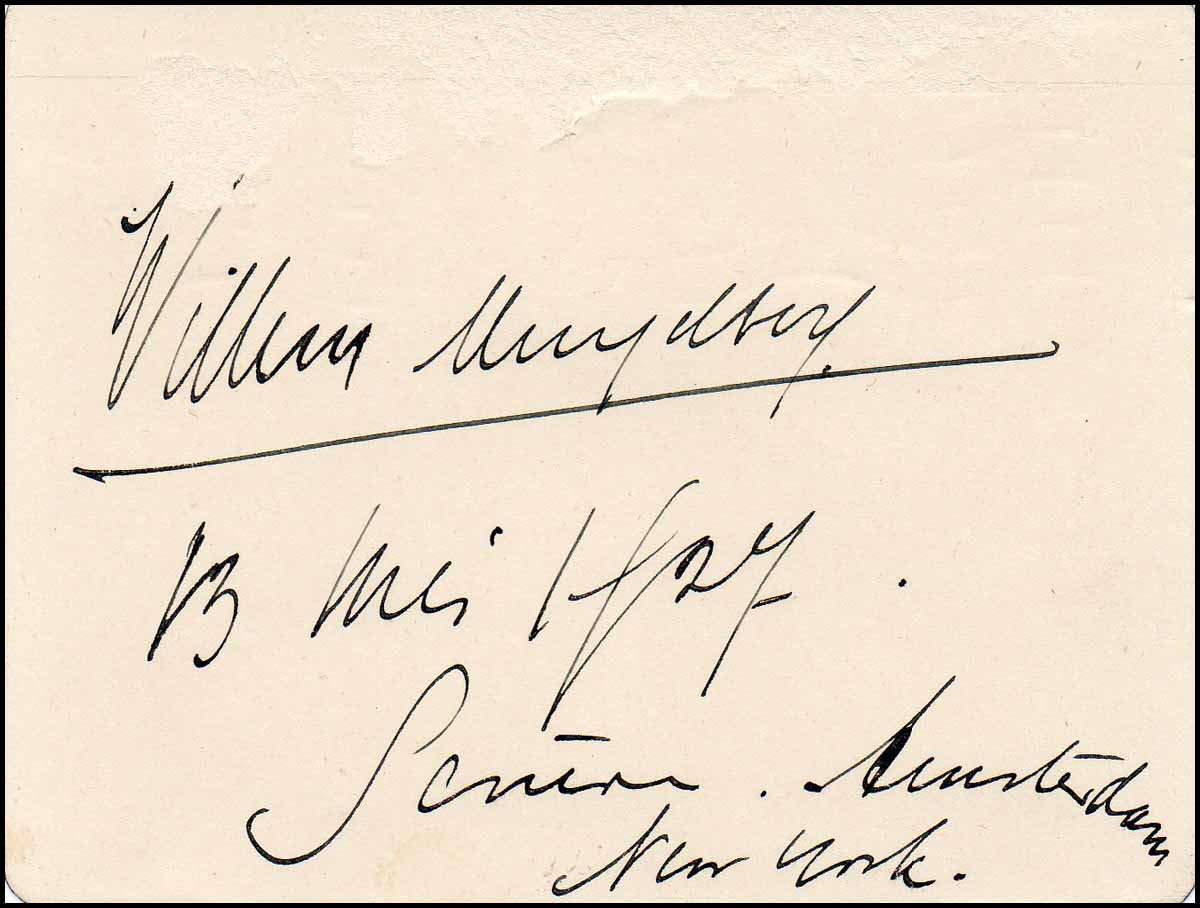 Willem Mengelberg.
13 Mei 1927.
Amsterdam
New York.